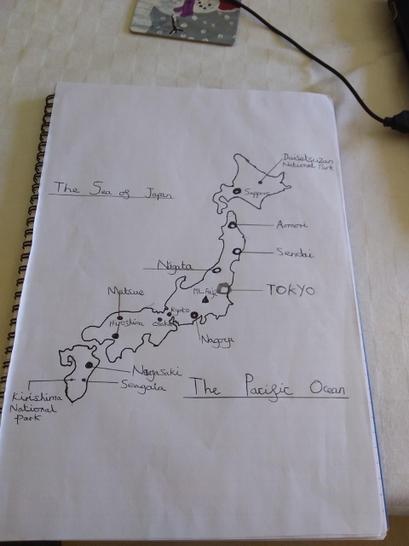 Daisetsuzan
National Park
The Sea of Japan
Sapporo
Aomori
Sendai
Niigata
Mt. Fuji
TOKYO
Matsue
Kyoto
Hiroshima
Osaka
Nagoya
Nagasaki
Seagaia
Kirishima
National
Park
The Pacific Ocean